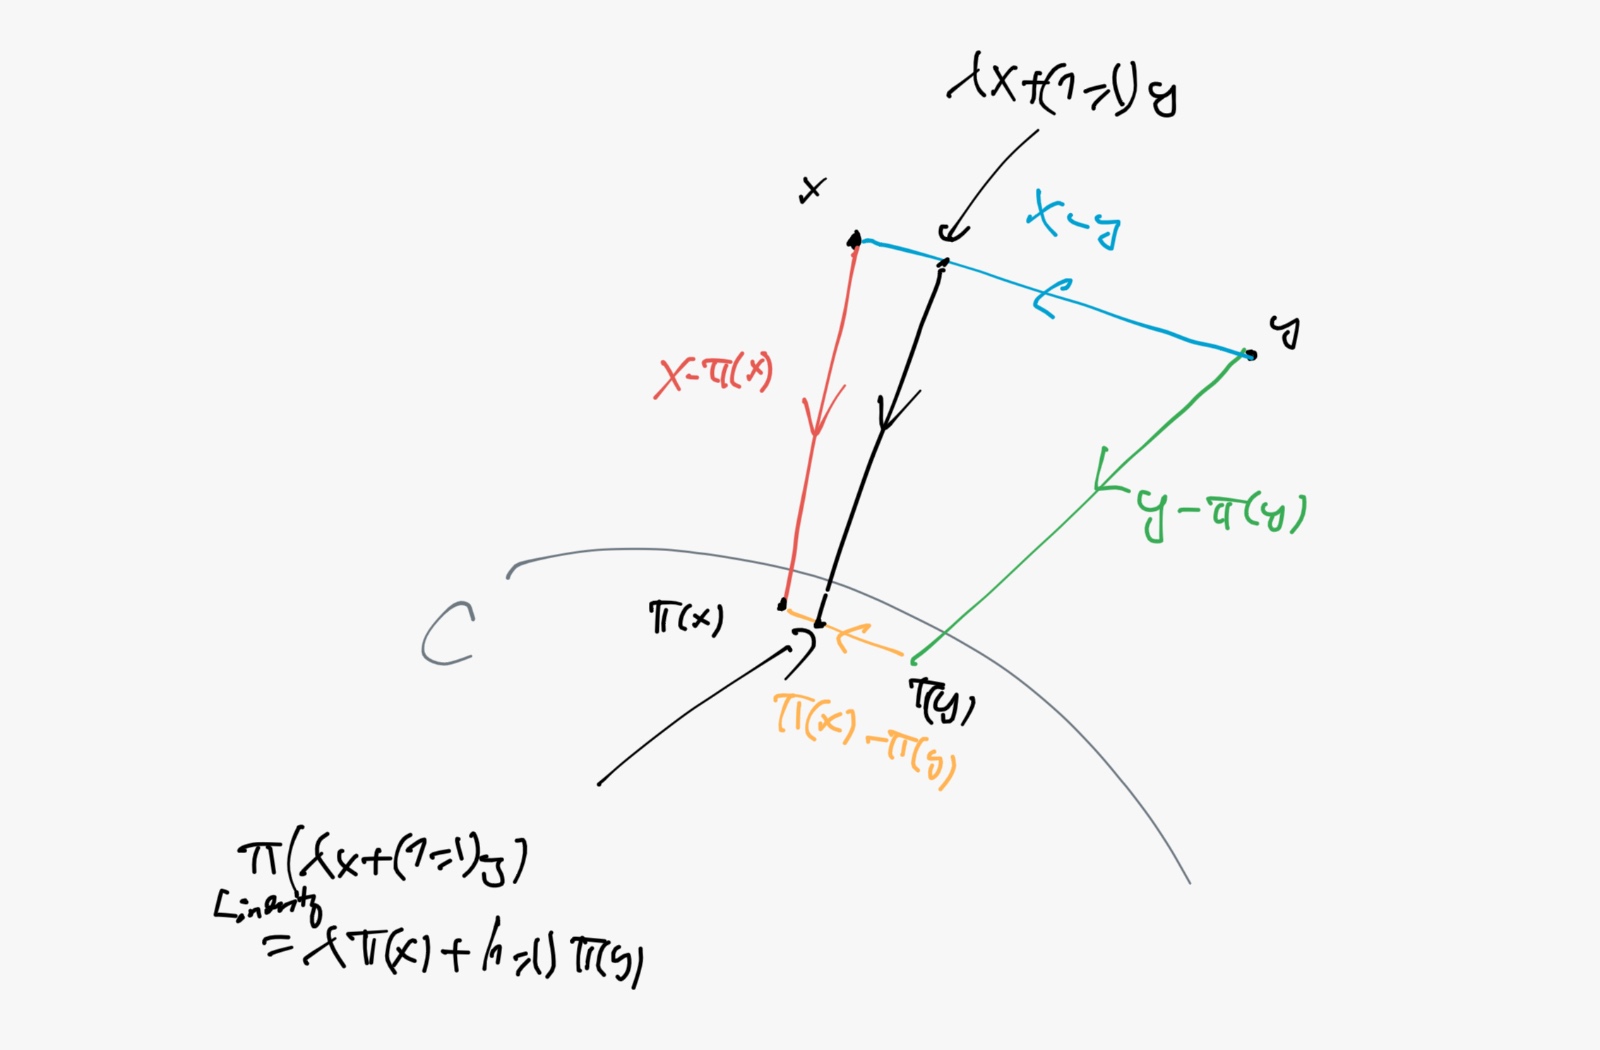 λx+(1-λ)y
x
x-y
y
x-π(x)
y-π(y)
C
π(x)
π(y)
π(x)-π(y)
π(λx+(1-λ)y)
Linearity
= λπ(x)+(1-λ)π(y)